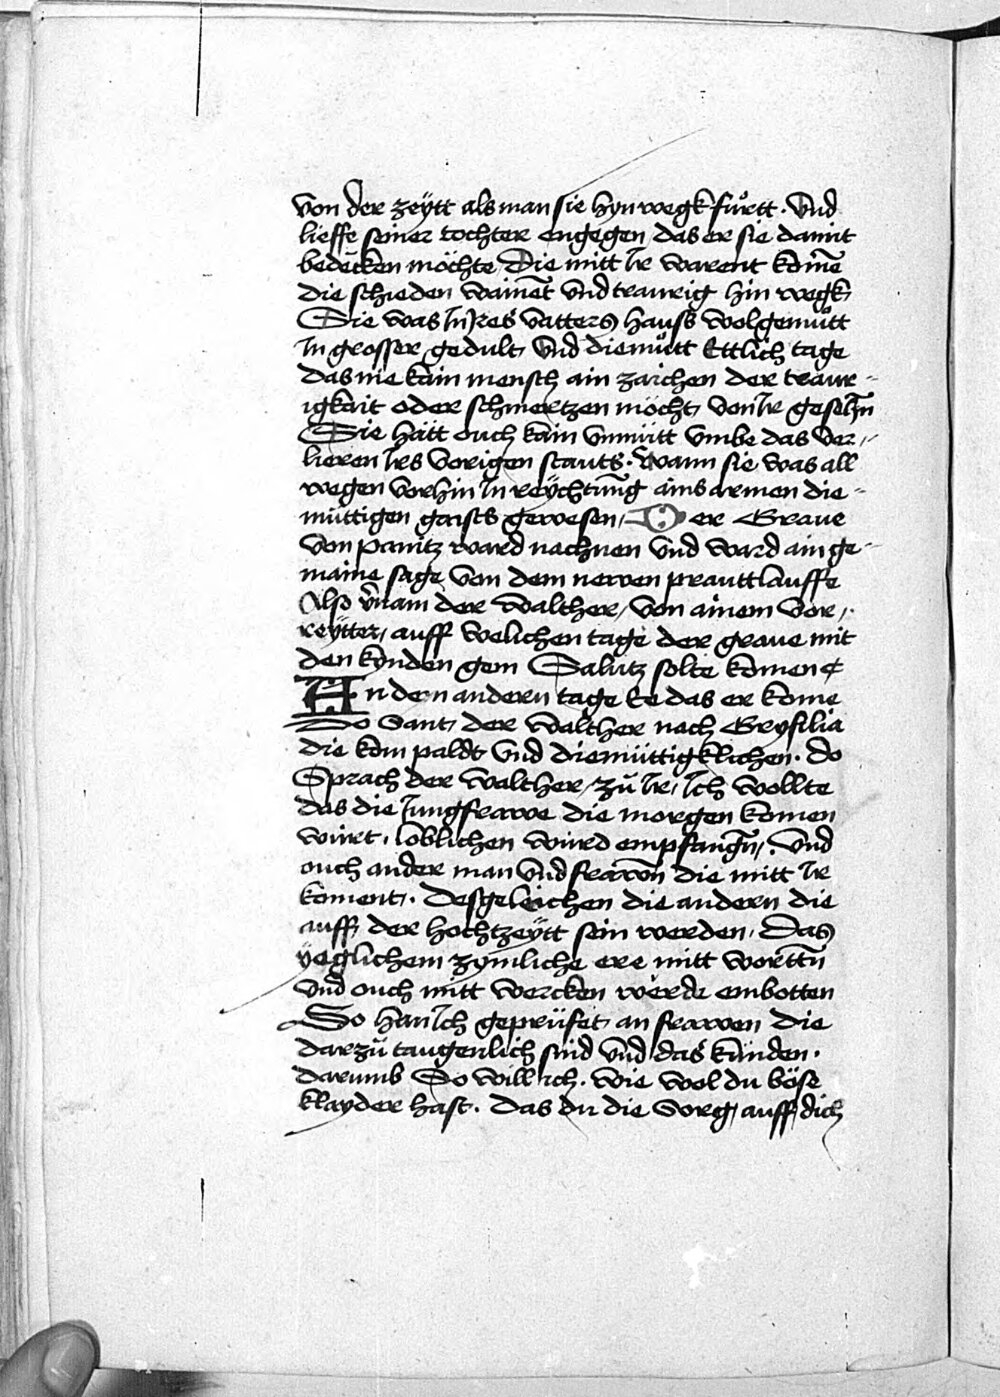 von der zeÿtt als man sie hyn wegk fuͦrtt · Vnd
lieffe seiner tochter engegen das er sie damit
bedecken möchte Die mitt Ir warent kom̄e
die schieden wainet vnd traurig hin wegk
Sie was In Ires vatters hauss wolgemuͦtt
In grosser gedult Vnd diemuͦtt Ettlich tage
das nie kain mensch ain zaichen der traur-
igkait oder schmertzen möcht von Ir gesehn̄
Sie hätt ouch kain vnmütt vmbe das ver-
lieren Irs vorigen stants · Wann sie was all
wegen vorhin In reÿchtung ains armen die-
müttigen gaists gewesen / Der Graue
von panitz ward nachnen vnd ward ain ge-
maine sage von dem newen prauttlauffe
Also v̄nam der walther / von ainem vor-
reÿtter / auff welichen tage der graue mit
den kynden gem Salutz solte komen
An dem andern tage Ee das er kome
Do Sant der walther nach Grysilia
die kom paldt vnd diemüttigklichen · do
Sprach der walther / zuͦ Ir / Ich wollte
das die Iungfrawe die morgen komen
würt · loblichen würd empfangn̄ / · vnd
ouch ander man vnd frawen die mitt Ir
koment · Dessgeleichen die andern die
auff der hochtzeÿtt sein werden / Das
ÿeglichem zymliche ere mitt wortten
vnd ouch mitt wercken werde embotten
So han Ich geprüfet an frawen die
darzuͦ taugenlich sind vnd das künden ·
darumb So will ich · wie wol du böse
klayder hast · Das du die Sorg / auff dich